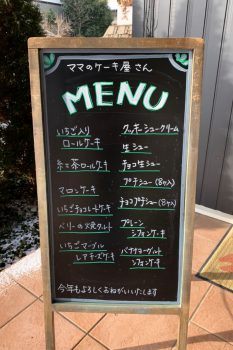 ママのケーキ屋さん
MENU
いちご入り
ロールケーキ
紅茶ロールケーキ
マロンケーキ
いちごチョコレートケーキ
ベリーの焼タルト
いちごマーブル
レアチーズケーキ
クッキーシュークリーム
生シュー
チョコ生シュー
プチシュー(8ヶ入)
チョコプチシュー(8ヶ入)
プレーン
シフォンケーキ
バナナヨーグルト
シフォンケーキ
今年もよろしくおねがいいたします